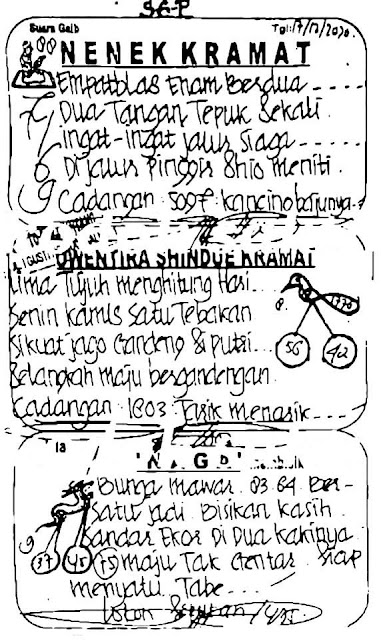 SGP
Suara Gaib
Tgl: 17/12/2020.
NENEK KRAMAT
Empatblas Enam Berdua
Dua Tangan Tepuk Sekali.
7 ingat-ingat jalur Siaga
6 Di jalur Pinggir Shio meniti.
9 Cadangan: 5097. kancino bajunya
UWENTIRA SHINDUE KRAMAT
Lima Tujuh menghitung Hasi..
Senin kamis satu Tebakan
8. 1273
Sikuat jago Gandeng Si putri...
56 42
Belangkah maju bergandengan.
Cadangan: 1803. Tarik menarik
'NAGA'
Bunga mawar. 03 64 Ber-
Satu jadi Bisikan kasih.
9 Bandar Ekor Di Dua kakinya.
37 45 75 maju Tak Gentar. Siap
menyatu Tabe